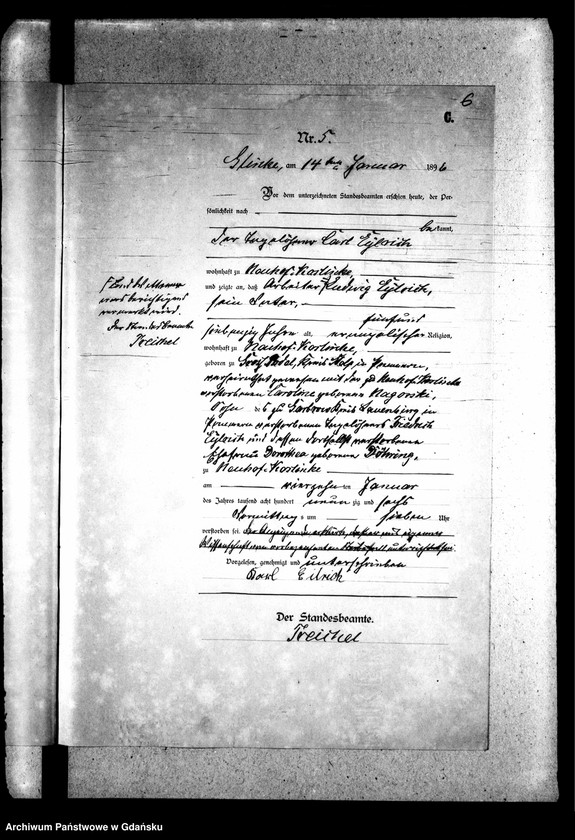 6
C.
Nr. 5.
Glincke, am 14ten Januar 1896
Vor dem unterzeichneten Standesbeamten erschien heute, der Per-
sönlichkeit nach
bekannt,
der Tagelöhner Carl Eylrich
wohnhaft zu Neuhof-Korlincke,
und zeigte an, daß Arbeiter Ludwig Eylrich,
sein Vater,
fünfund
siebenzig Jahre alt, evangelischer Religion,
wohnhaft zu Neuhof-Korlincke,
geboren zu Kreis Stolp, in Pommern,
verheirathet gewesen mit der zu Neuhof-Korlincke
verstorbenen Caroline geborenen Nagorski,
Sohn des zu Kreis Lauenburg in
Pommern verstorbenen Tagelöhners Friedrich
Eylrich und dessen daselbst verstorbenen
Ehefrau Dorothea geborenen Döhring,
zu Neuhof-Korlincke
am vierzehnten Januar
des Jahres tausend acht hundert neunzig und sechs
Vormittags um sieben Uhr
verstorben sei. der Anzeigende erklärte, daß er aus eigener
Wissenschaft von vorliegendem unterrichtet sei.
Vorgelesen, genehmigt und unterschrieben
Karl Eilrich
Der Standesbeamte.
Treichel
Der Standesbeamte
Treichel
Archiwum Państwowe w Gdańsku